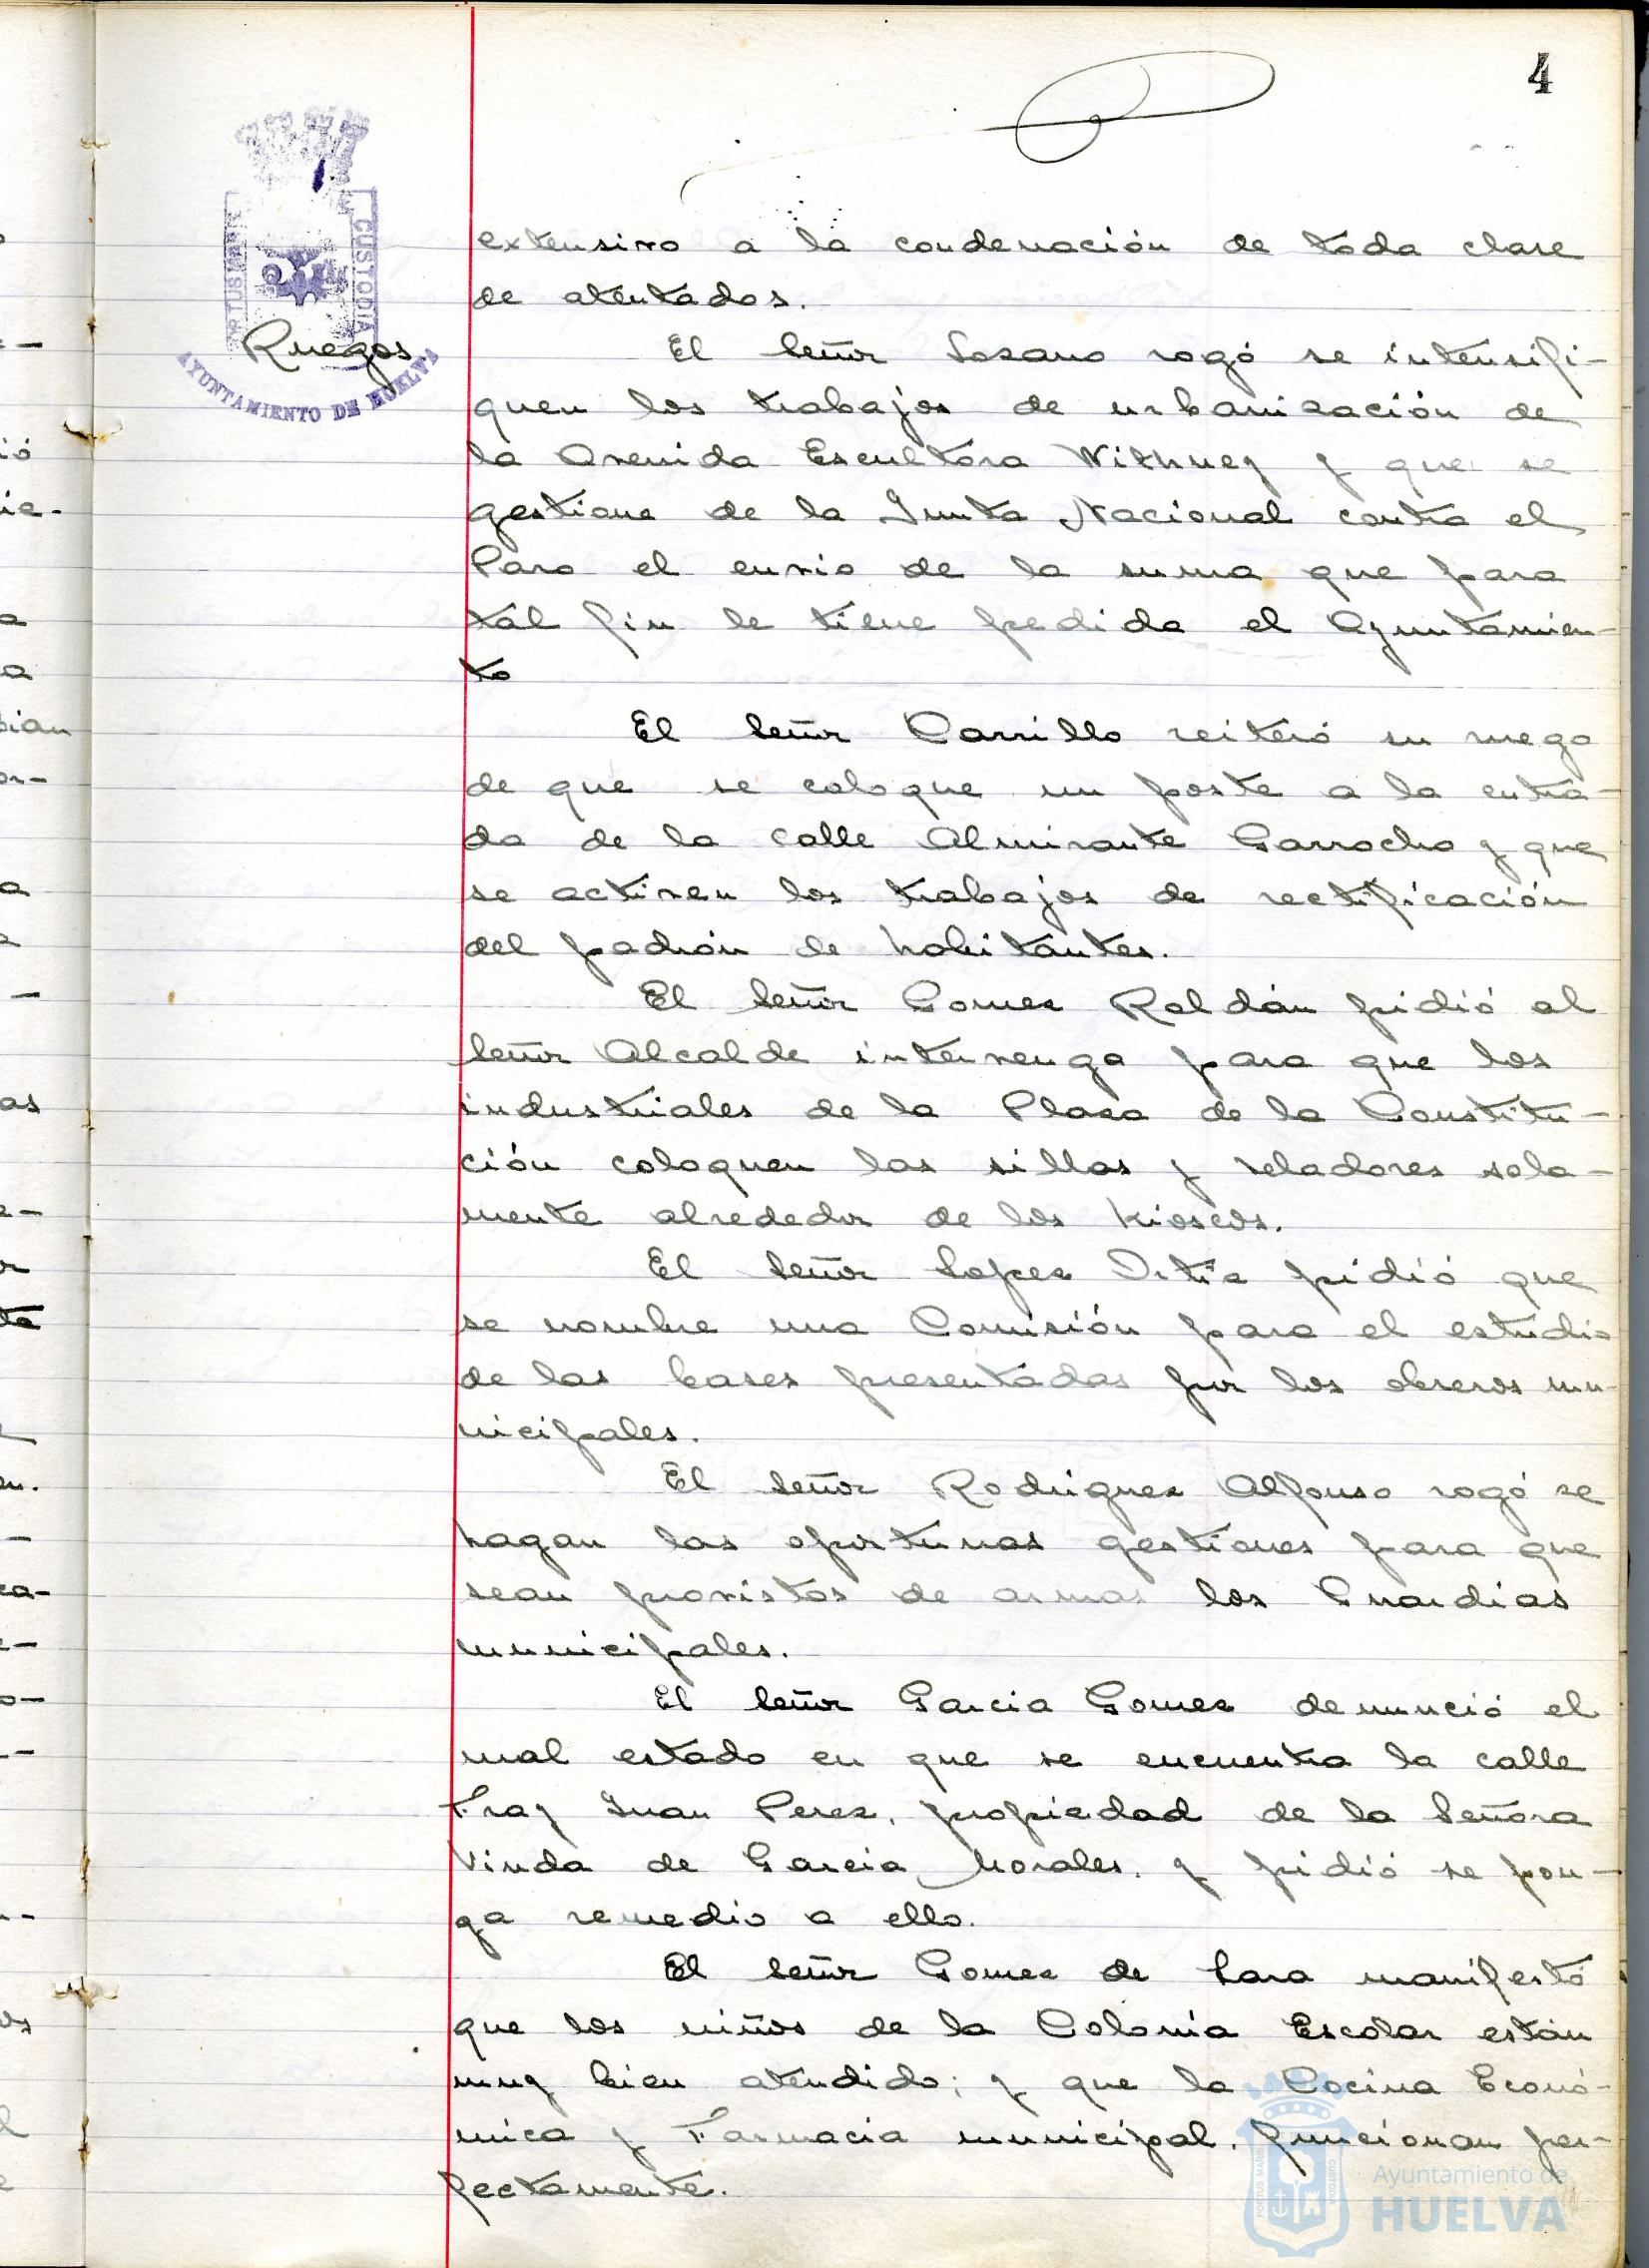 4
PORTUS MARIS
CUSTODIA
AYUNTAMIENTO DE HUELVA
Ruegos
extensivo a la condenación de toda clase
de atentados.
El Señor Lozano rogó se intensifi-
quen los trabajos de urbanización de
la Avenida Escultora Withney y que se
gestione de la Junta Nacional contra el
Paro el envio de la suma que para
tal fin le tiene pedida el Ayuntamien-
to
El Señor Carrillo reiteró su ruego
de que se coloque un poste a la entra-
da de la calle Almirante Garrocho y que
se activen los trabajos de rectificación
del padrón de habitantes.
El Señor Gomez Roldán pidió al
Señor Alcalde intervenga para que los
industriales de la Plaza de la Constitu-
ción coloquen las sillas y veladores sola-
mente alrededor de los kioscos.
El Señor Lopez Ortiz pidió que
se nombre una Comisión para el estudio
de las bases presentadas por los obreros mu-
nicipales.
El Señor Rodriguez Alfonso rogó se
hagan las oportunas gestiones para que
sean provistos de armas los Guardias
municipales.
El Señor Garcia Gomez denunció el
mal estado en que se encuentra la calle
Fray Juan Perez, propiedad de la Señora
Viuda de Garcia Morales, y pidió se pon-
ga remedio a ello.
El Señor Gomez de Lara manifestó
que los niños de la Colonia Escolar están
muy bien atendido; y que la Cocina Econó-
mica y Farmacia municipal, funcionan per-
fectamente.
Ayuntamiento de
HUELVA